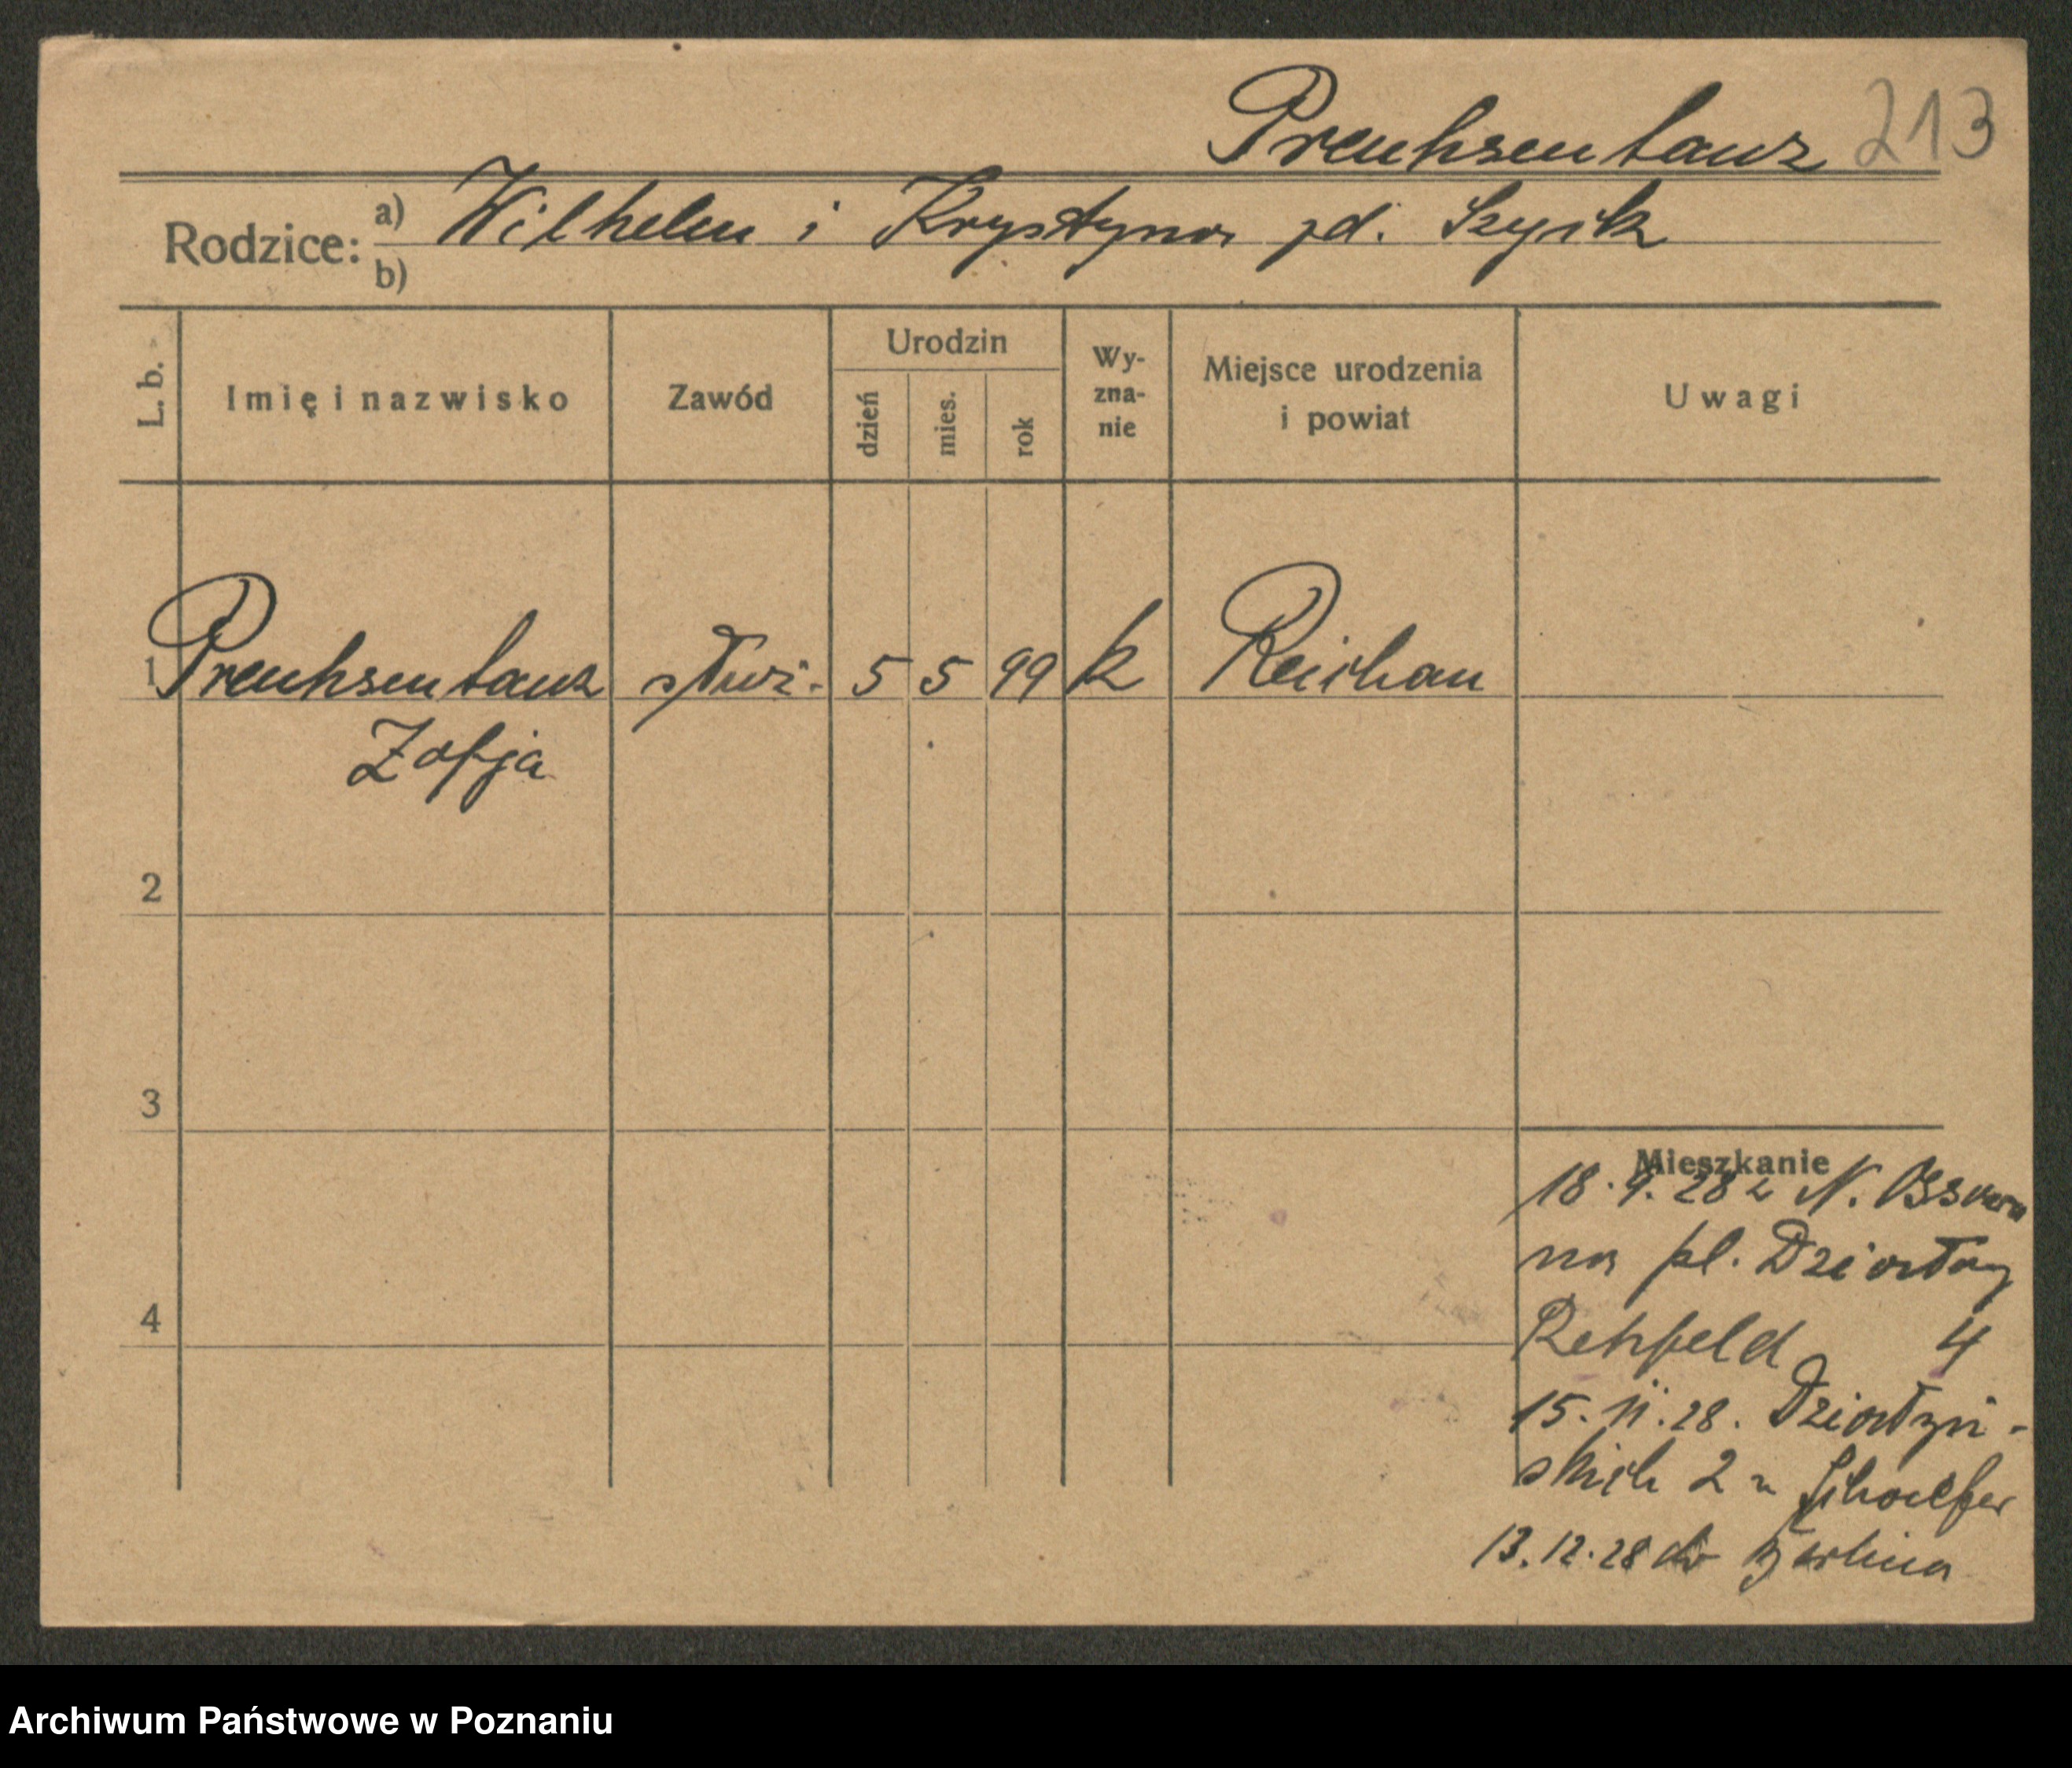 Preuhsentanz 213
Rodzice: a) Wilhelm i Krystyna zd. Szyik
b)
L. b. Imię i nazwisko Zawód Urodzin dzień mies. rok Wy-zna-nie Miejsce urodzenia i powiat Uwagi
1 Preuhsentanz służ. 5 5 99 k Reichau
Zofja
2
3
Mieszkanie
18.9.28 z N.
na pl. Działowy
4
Rehfeld 4
15.11.28. Działyń-
skich 2 u Schaefer
13.12.28 do Berlina
Archiwum Państwowe w Poznaniu